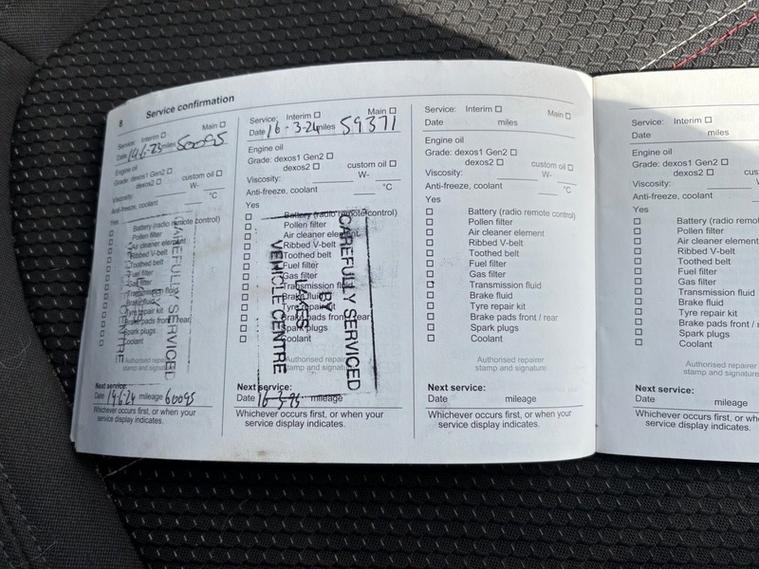 8 Service confirmation
Service: Interim Main
Date 14-6-23 miles 50095
Engine oil
Grade: dexos1 Gen2
dexos2 custom oil
Viscosity: W-
Anti-freeze, coolant °C
Yes
Battery (radio remote control)
Pollen filter
Air cleaner element
Ribbed V-belt
Toothed belt
Fuel filter
Gas filter
Transmission fluid
Brake fluid
Tyre repair kit
Brake pads front / rear
Spark plugs
Coolant
Authorised repairer
stamp and signature
CAREFULLY SERVICED
BY
VEHICLE CENTRE
Next service:
Date 14-6-24 mileage 60095
Whichever occurs first, or when your
service display indicates.
Service: Interim Main
Date 16-3-24 miles 59371
Engine oil
Grade: dexos1 Gen2
dexos2 custom oil
Viscosity: W-
Anti-freeze, coolant °C
Yes
Battery (radio remote control)
Pollen filter
Air cleaner element
Ribbed V-belt
Toothed belt
Fuel filter
Gas filter
Transmission fluid
Brake fluid
Tyre repair kit
Brake pads front / rear
Spark plugs
Coolant
Authorised repairer
stamp and signature
CAREFULLY SERVICED
BY
VEHICLE CENTRE
Next service:
Date 16-3-25 mileage
Whichever occurs first, or when your
service display indicates.
Service: Interim Main
Date miles
Engine oil
Grade: dexos1 Gen2
dexos2 custom oil
Viscosity: W-
Anti-freeze, coolant °C
Yes
Battery (radio remote control)
Pollen filter
Air cleaner element
Ribbed V-belt
Toothed belt
Fuel filter
Gas filter
Transmission fluid
Brake fluid
Tyre repair kit
Brake pads front / rear
Spark plugs
Coolant
Authorised repairer
stamp and signature
Next service:
Date mileage
Whichever occurs first, or when your
service display indicates.
Service: Interim
Date miles
Engine oil
Grade: dexos1 Gen2
dexos2 cus
Viscosity: W-
Anti-freeze, coolant
Yes
Battery (radio remo
Pollen filter
Air cleaner element
Ribbed V-belt
Toothed belt
Fuel filter
Gas filter
Transmission fluid
Brake fluid
Tyre repair kit
Brake pads front /
Spark plugs
Coolant
Authorised repairer
stamp and signature
Next service:
Date mileage
Whichever occurs first, or wh
service display indicates.